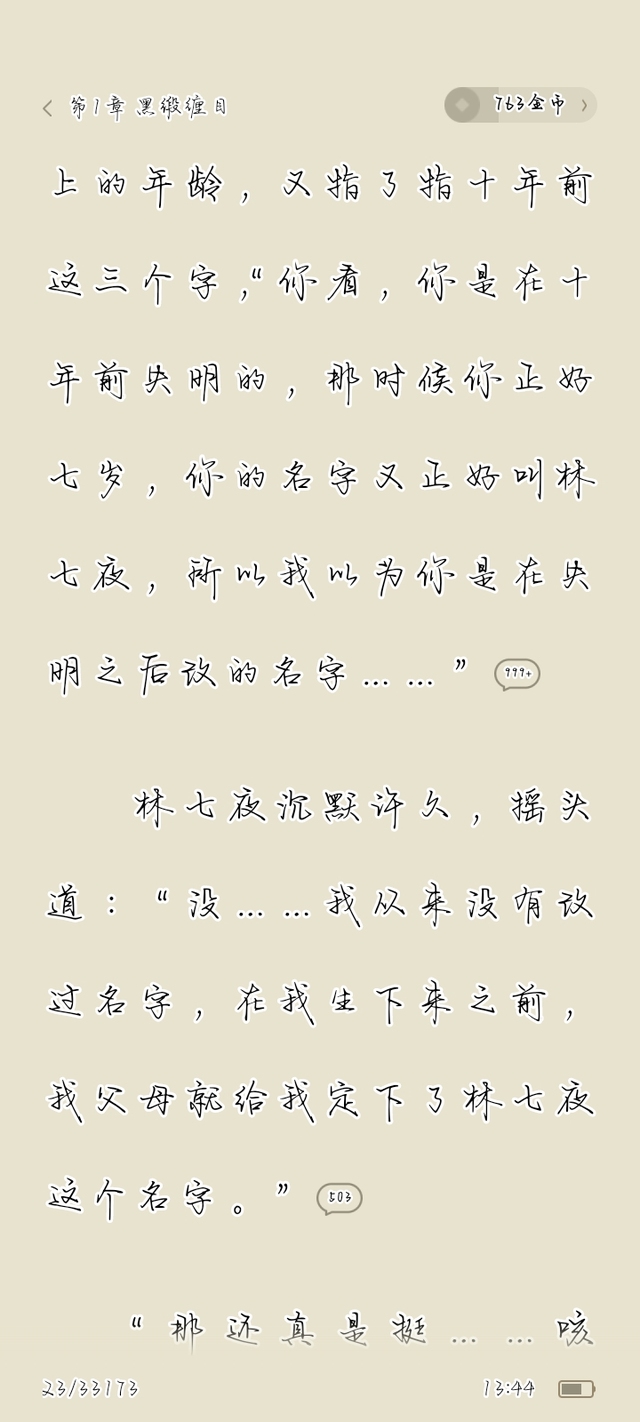 第1章 黑缎缠目
763金币
上的年龄，又指了指十年前
这三个字，“你看，你是在十
年前失明的，那时候你正好
七岁，你的名字又正好叫林
七夜，所以我以为你是在失
明之后改的名字……” 999+
林七夜沉默许久，摇头
道：“没……我从来没有改
过名字，在我生下来之前，
我父母就给我定下了林七夜
这个名字。” 503
“那还真是挺……咳
23/33173
13:44